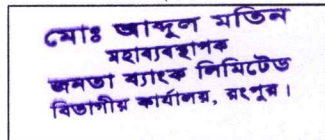 মোঃ আব্দুল মতিন
মহাব্যবস্থাপক
জনতা ব্যাংক লিমিটেড
বিভাগীয় কার্যালয়, রংপুর।